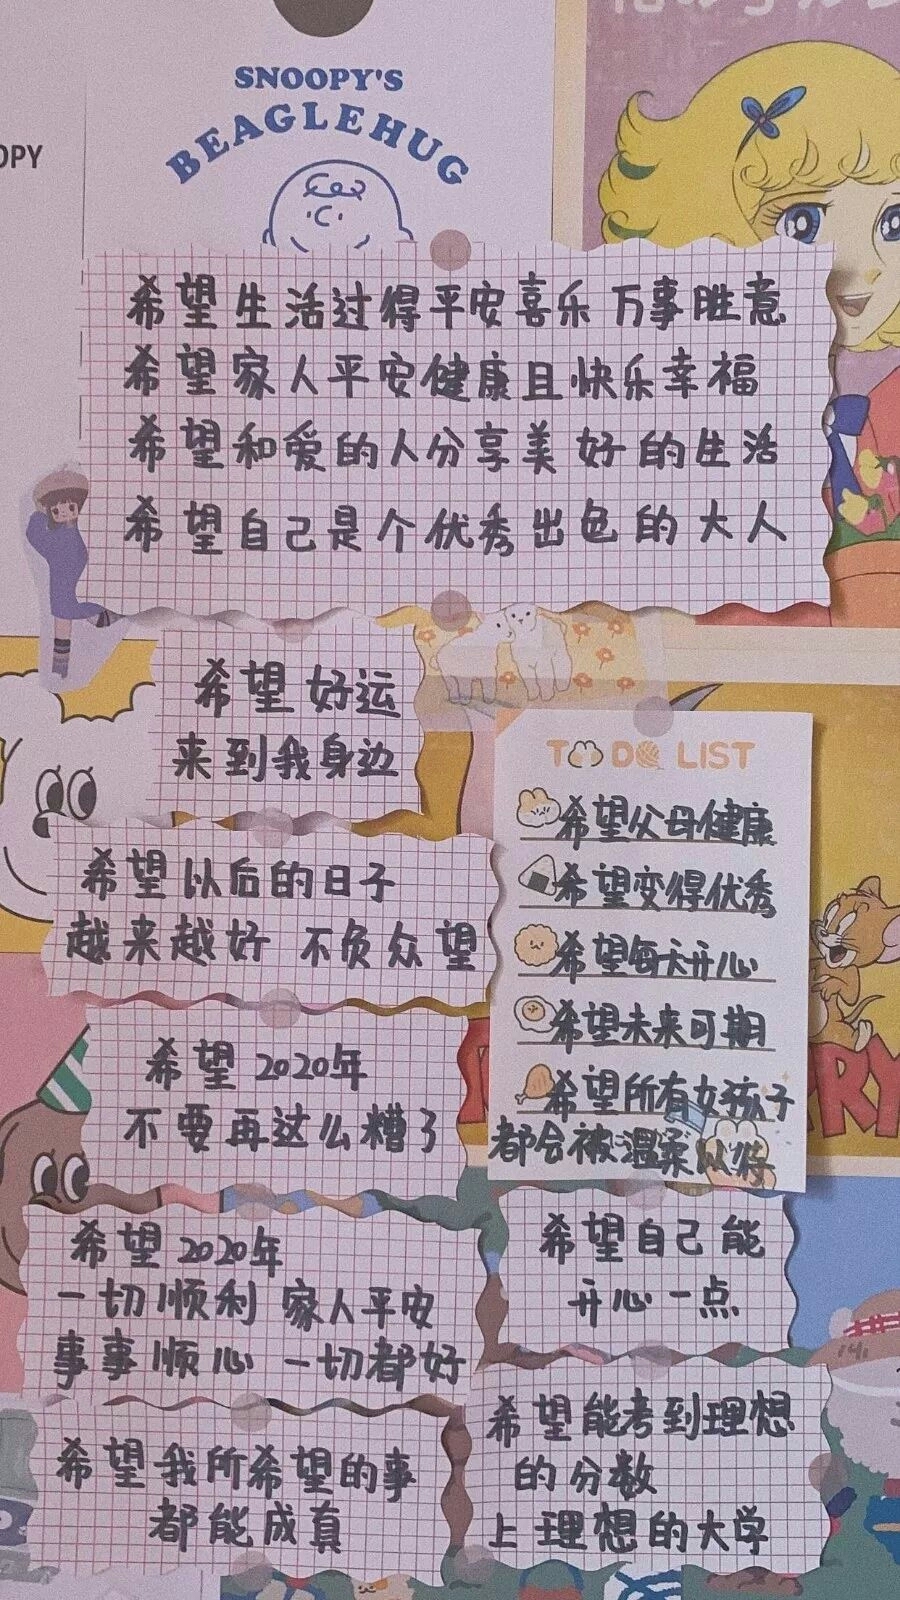 SNOOPY'S
BEAGLEHUG
OPY
希望生活过得平安喜乐 万事胜意
希望家人平安健康且快乐幸福
希望和爱的人分享美好的生活
希望自己是个优秀出色的大人
希望好运
来到我身边
TO DO LIST
希望父母健康
希望变得优秀
希望每天开心
希望未来可期
希望所有女孩子
都会被温柔以待
希望以后的日子
越来越好 不负众望
希望2020年
不要再这么糟了
希望2020年
一切顺利 家人平安
事事顺心 一切都好
希望自己能
开心一点
希望我所希望的事
都能成真
希望能考到理想
的分数
上理想的大学